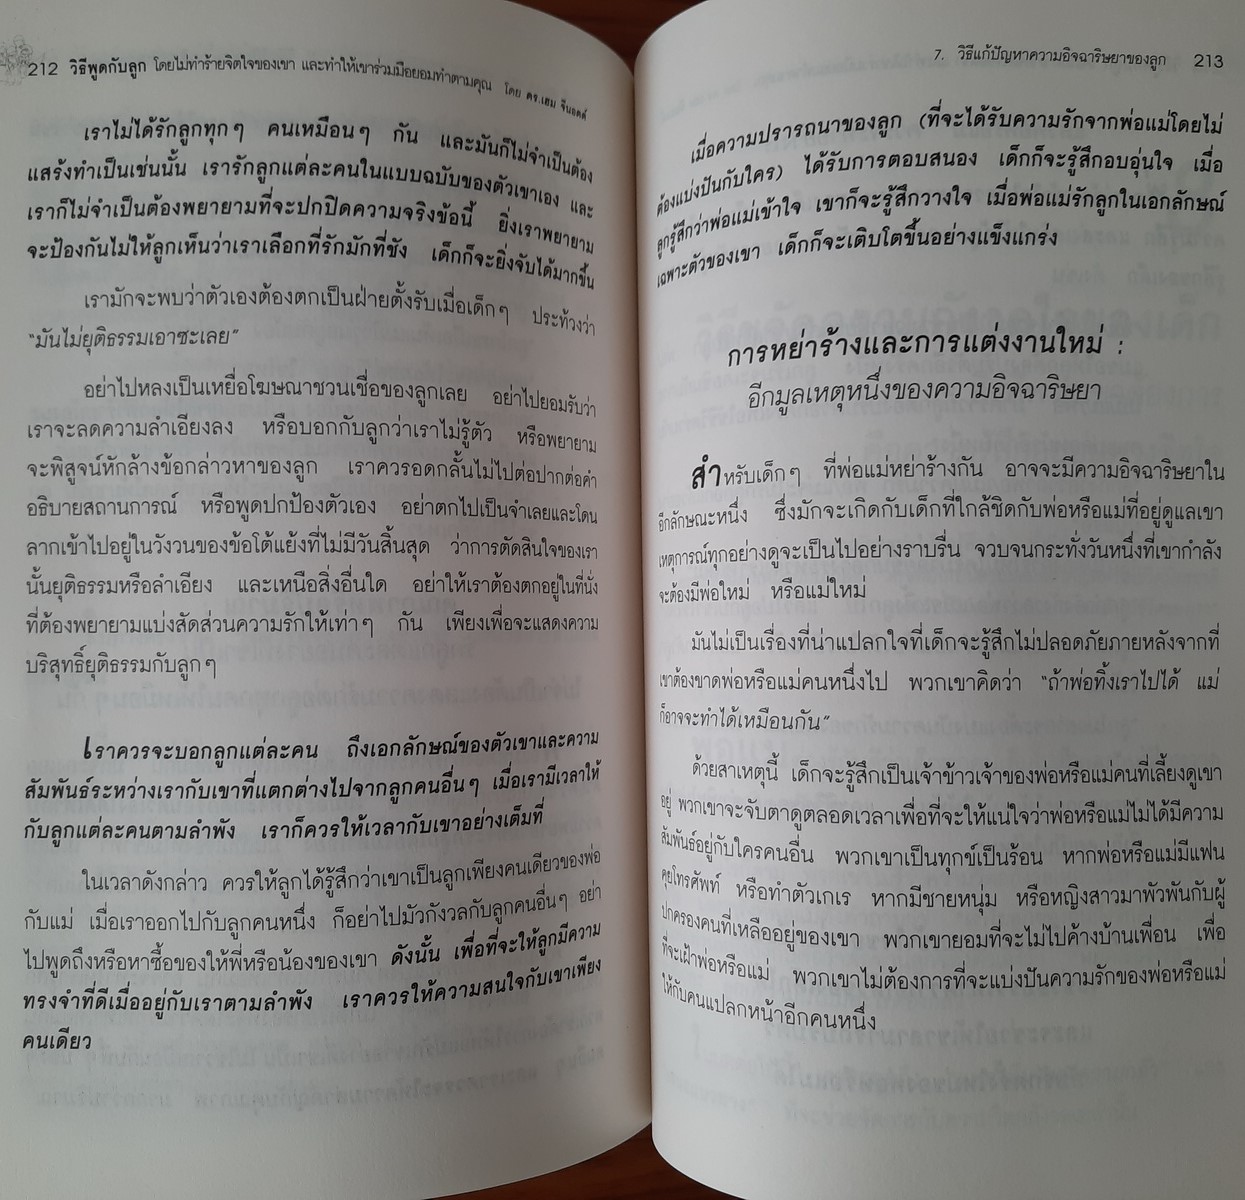 212 วิธีพูดกับลูก โดยไม่ทำร้ายจิตใจของเขา และทำให้เขาร่วมมือยอมทำตามคุณ โดย ดร.เฮม จีนอตต์
เราไม่ได้รักลูกทุกๆ คนเหมือนๆ กัน และมันก็ไม่จำเป็นต้อง
แสร้งทำเป็นเช่นนั้น เรารักลูกแต่ละคนในแบบฉบับของตัวเขาเอง และ
เราก็ไม่จำเป็นต้องพยายามที่จะปกปิดความจริงข้อนี้ ยิ่งเราพยายาม
จะป้องกันไม่ให้ลูกเห็นว่าเราเลือกที่รักมักที่ชัง เด็กก็จะยิ่งจับได้มากขึ้น
เรามักจะพบว่าตัวเองต้องตกเป็นฝ่ายตั้งรับเมื่อเด็กๆ ประท้วงว่า
“มันไม่ยุติธรรมเอาซะเลย”
อย่าไปหลงเป็นเหยื่อโฆษณาชวนเชื่อของลูกเลย อย่าไปยอมรับว่า
เราจะลดความลำเอียงลง หรือบอกกับลูกว่าเราไม่รู้ตัว หรือพยายาม
จะพิสูจน์หักล้างข้อกล่าวหาของลูก เราควรอดกลั้นไม่ไปต่อปากต่อคำ
อธิบายสถานการณ์ หรือพูดปกป้องตัวเอง อย่าตกไปเป็นจำเลยและโดน
ลากเข้าไปอยู่ในวังวนของข้อโต้แย้งที่ไม่มีวันสิ้นสุด ว่าการตัดสินใจของเรา
นั้นยุติธรรมหรือลำเอียง และเหนือสิ่งอื่นใด อย่าให้เราต้องตกอยู่ในที่นั่ง
ที่ต้องพยายามแบ่งสัดส่วนความรักให้เท่าๆ กัน เพียงเพื่อจะแสดงความ
บริสุทธิ์ยุติธรรมกับลูกๆ
เราควรจะบอกลูกแต่ละคน ถึงเอกลักษณ์ของตัวเขาและความ
สัมพันธ์ระหว่างเรากับเขาที่แตกต่างไปจากลูกคนอื่นๆ เมื่อเรามีเวลาให้
กับลูกแต่ละคนตามลำพัง เราก็ควรให้เวลากับเขาอย่างเต็มที่
ในเวลาดังกล่าว ควรให้ลูกได้รู้สึกว่าเขาเป็นลูกเพียงคนเดียวของพ่อ
กับแม่ เมื่อเราออกไปกับลูกคนหนึ่ง ก็อย่าไปมัวกังวลกับลูกคนอื่นๆ อย่า
ไปพูดถึงหรือหาซื้อของให้พี่หรือน้องของเขา ดังนั้น เพื่อที่จะให้ลูกมีความ
ทรงจำที่ดีเมื่ออยู่กับเราตามลำพัง เราควรให้ความสนใจกับเขาเพียง
คนเดียว
7. วิธีแก้ปัญหาความอิจฉาริษยาของลูก 213
เมื่อความปรารถนาของลูก (ที่จะได้รับความรักจากพ่อแม่โดยไม่
ต้องแบ่งปันกับใคร) ได้รับการตอบสนอง เด็กก็จะรู้สึกอบอุ่นใจ เมื่อ
ลูกรู้สึกว่าพ่อแม่เข้าใจ เขาก็จะรู้สึกวางใจ เมื่อพ่อแม่รักลูกในเอกลักษณ์
เฉพาะตัวของเขา เด็กก็จะเติบโตขึ้นอย่างแข็งแกร่ง
การหย่าร้างและการแต่งงานใหม่ :
อีกมูลเหตุหนึ่งของความอิจฉาริษยา
สำหรับเด็กๆ ที่พ่อแม่หย่าร้างกัน อาจจะมีความอิจฉาริษยาใน
อีกลักษณะหนึ่ง ซึ่งมักจะเกิดกับเด็กที่ใกล้ชิดกับพ่อหรือแม่ที่อยู่ดูแลเขา
เหตุการณ์ทุกอย่างดูจะเป็นไปอย่างราบรื่น จวบจนกระทั่งวันหนึ่งที่เขากำลัง
จะต้องมีพ่อใหม่ หรือแม่ใหม่
มันไม่เป็นเรื่องที่น่าแปลกใจที่เด็กจะรู้สึกไม่ปลอดภัยภายหลังจากที่
เขาต้องขาดพ่อหรือแม่คนหนึ่งไป พวกเขาคิดว่า “ถ้าพ่อทิ้งเราไปได้ แม่
ก็อาจจะทำได้เหมือนกัน”
ด้วยสาเหตุนี้ เด็กจะรู้สึกเป็นเจ้าข้าวเจ้าของพ่อหรือแม่คนที่เลี้ยงดูเขา
อยู่ พวกเขาจะจับตาดูตลอดเวลาเพื่อที่จะให้แน่ใจว่าพ่อหรือแม่ไม่ได้มีความ
สัมพันธ์อยู่กับใครคนอื่น พวกเขาเป็นทุกข์เป็นร้อน หากพ่อหรือแม่มีแฟน
คุยโทรศัพท์ หรือทำตัวเกเร หากมีชายหนุ่ม หรือหญิงสาวมาพัวพันกับผู้
ปกครองคนที่เหลืออยู่ของเขา พวกเขายอมที่จะไม่ไปค้างบ้านเพื่อน เพื่อ
ที่จะเฝ้าพ่อหรือแม่ พวกเขาไม่ต้องการที่จะแบ่งปันความรักของพ่อหรือแม่
ให้กับคนแปลกหน้าอีกคนหนึ่ง